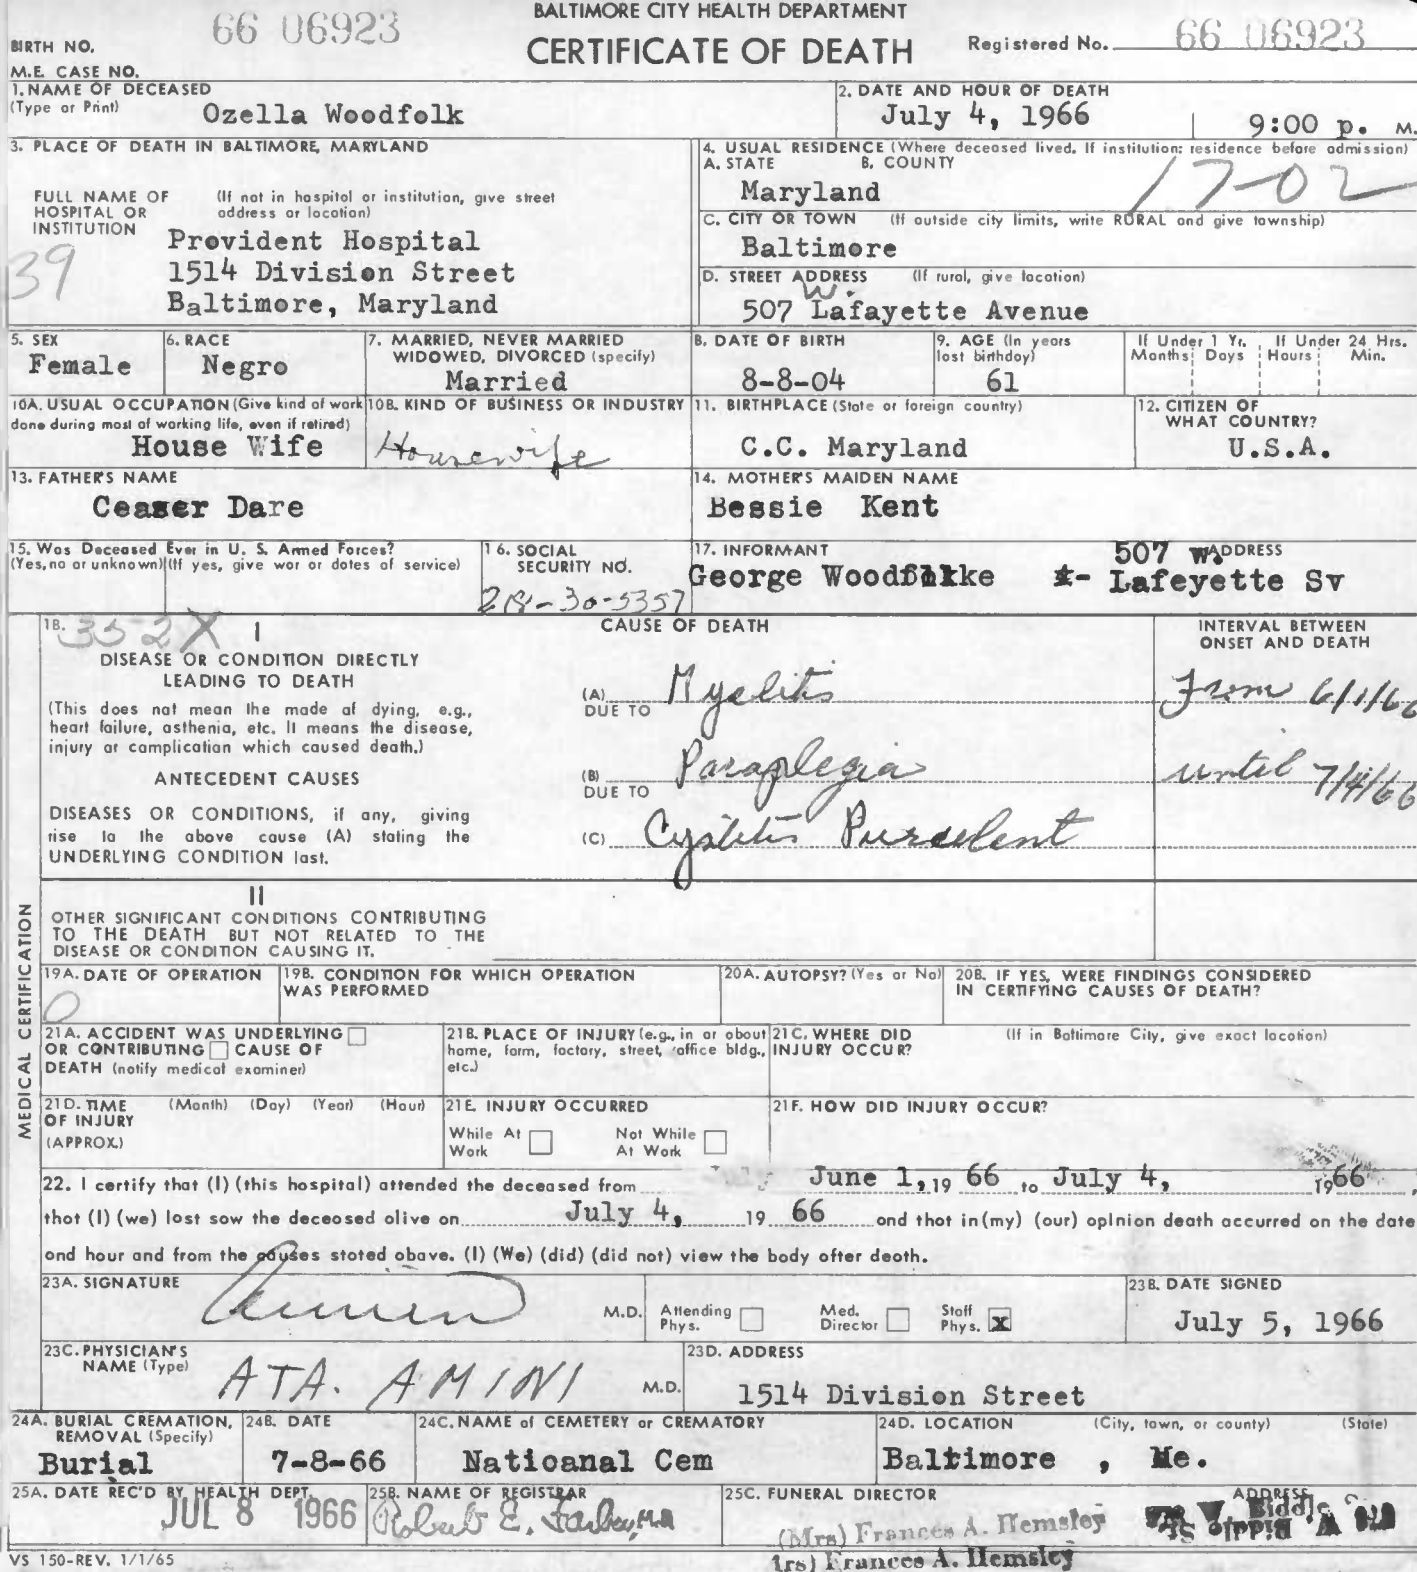 BALTIMORE CITY HEALTH DEPARTMENT
66 06923
CERTIFICATE OF DEATH
BIRTH NO.
Registered No. 66 06923
M.E. CASE NO.
1. NAME OF DECEASED
(Type or Print)
Ozella Woodfolk
2. DATE AND HOUR OF DEATH
July 4, 1966 9:00 p. M.
3. PLACE OF DEATH IN BALTIMORE, MARYLAND
FULL NAME OF HOSPITAL OR INSTITUTION
(If not in hospital or institution, give street address or location)
39
Provident Hospital
1514 Division Street
Baltimore, Maryland
4. USUAL RESIDENCE (Where deceased lived. If institution: residence before admission)
A. STATE B. COUNTY
Maryland 17-02
C. CITY OR TOWN (If outside city limits, write RURAL and give township)
Baltimore
D. STREET ADDRESS (If rural, give location)
W.
507 Lafayette Avenue
5. SEX
Female
6. RACE
Negro
7. MARRIED, NEVER MARRIED
WIDOWED, DIVORCED (specify)
Married
8. DATE OF BIRTH
8-8-04
9. AGE (In years
last birthday)
61
If Under 1 Yr. If Under 24 Hrs.
Months Days Hours Min.
10A. USUAL OCCUPATION (Give kind of work
done during most of working life, even if retired)
House Wife
10B. KIND OF BUSINESS OR INDUSTRY
Housewife
11. BIRTHPLACE (State or foreign country)
C.C. Maryland
12. CITIZEN OF
WHAT COUNTRY?
U.S.A.
13. FATHER'S NAME
Ceaser Dare
14. MOTHER'S MAIDEN NAME
Bessie Kent
15. Was Deceased Ever in U. S. Armed Forces?
(Yes, no or unknown) (If yes, give war or dates of service)
16. SOCIAL
SECURITY NO.
218-30-5357
17. INFORMANT
George
ADDRESS
507 W.
Lafeyette Sv
18. 352X
I
DISEASE OR CONDITION DIRECTLY
LEADING TO DEATH
(This does not mean the mode of dying, e.g.,
heart failure, asthenia, etc. It means the disease,
injury or complication which caused death.)
ANTECEDENT CAUSES
DISEASES OR CONDITIONS, if any, giving
rise to the above cause (A) stating the
UNDERLYING CONDITION last.
CAUSE OF DEATH
INTERVAL BETWEEN
ONSET AND DEATH
(A) Myelitis From 6/1/66
DUE TO
(B) Paraplegia until 7/4/66
DUE TO
(C) Cystitis Purulent
MEDICAL CERTIFICATION
II
OTHER SIGNIFICANT CONDITIONS CONTRIBUTING
TO THE DEATH BUT NOT RELATED TO THE
DISEASE OR CONDITION CAUSING IT.
19A. DATE OF OPERATION
0
19B. CONDITION FOR WHICH OPERATION
WAS PERFORMED
20A. AUTOPSY? (Yes or No)
20B. IF YES, WERE FINDINGS CONSIDERED
IN CERTIFYING CAUSES OF DEATH?
21A. ACCIDENT WAS UNDERLYING
OR CONTRIBUTING CAUSE OF
DEATH (notify medical examiner)
21B. PLACE OF INJURY (e.g., in or about
home, farm, factory, street, office bldg.,
etc.)
21C. WHERE DID
INJURY OCCUR?
(If in Baltimore City, give exact location)
21D. TIME
OF INJURY
(APPROX.)
(Month) (Day) (Year) (Hour)
21E. INJURY OCCURRED
While At
Work
Not While
At Work
21F. HOW DID INJURY OCCUR?
22. I certify that (I) (this hospital) attended the deceased from June 1, 19 66 to July 4, 1966,
that (I) (we) last saw the deceased alive on July 4, 19 66 and that in (my) (our) opinion death occurred on the date
and hour and from the causes stated above. (I) (We) (did) (did not) view the body after death.
23A. SIGNATURE
M.D.
Attending
Phys.
Med.
Director
Staff
Phys. X
23B. DATE SIGNED
July 5, 1966
23C. PHYSICIAN'S
NAME (Type)
ATA. AMINI M.D.
23D. ADDRESS
1514 Division Street
24A. BURIAL CREMATION,
REMOVAL (Specify)
Burial
24B. DATE
7-8-66
24C. NAME of CEMETERY or CREMATORY
Natioanal Cem
24D. LOCATION (City, town, or county) (State)
Baltimore , Me.
25A. DATE REC'D BY HEALTH DEPT.
JUL 8 1966
25B. NAME OF REGISTRAR
Robert E. Farber, M.D.
25C. FUNERAL DIRECTOR
(Mrs) Frances A. Hemsley
rs) Frances A. Hemsley
ADDRESS
W. Biddle
VS 150-REV. 1/1/65